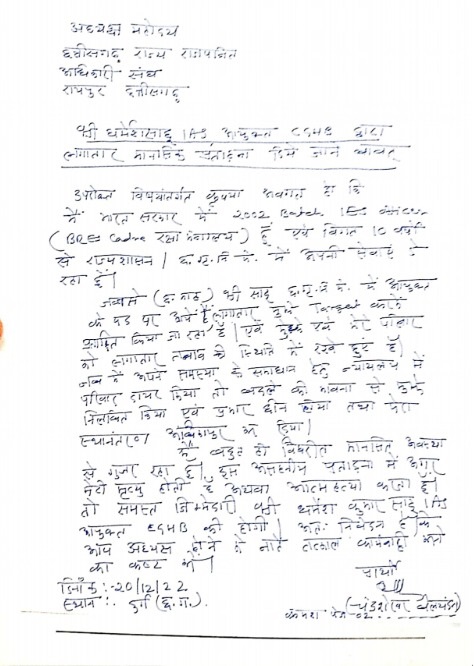 अध्यक्ष महोदय
छत्तीसगढ़ राज्य राजपत्रित
अधिकारी संघ
रायपुर छत्तीसगढ़
श्री धर्मेश साहू IAS आयुक्त CGHB द्वारा
लगातार मानसिक प्रताड़ना दिये जाने बाबत्
उपरोक्त विषयांतर्गत कृपया अवगत हो कि
मैं भारत सरकार में 2002 Batch IES officer
(BRES Cadre रक्षा मंत्रालय) हूँ एवं विगत 10 वर्षों
से राज्य शासन / छ.गृ.नि.मं. में अपनी सेवाएं दे
रहा हूँ।
जबसे श्री साहू छ.गृ.नि.मं. में आयुक्त
के पद पर आये हैं लगातार मुझे Target करके
प्रताड़ित किया जा रहा है। एवं मुझे एवं मेरे परिवार
को लगातार तनाव की स्थिति में रखे हुए हैं।
जब मैं अपने समस्या के समाधान हेतु न्यायालय में
परिवाद दायर किया तो बदले की भावना से मुझे
निलंबित किया एवं प्रभार हीन किया तथा मेरा
स्थानांतरण अंबिकापुर कर दिया।
मैं बहुत ही विपरीत मानसिक अवस्था
से गुजर रहा हूँ। इस असहनीय प्रताड़ना में अगर
मेरी मृत्यु होती है अथवा आत्महत्या करता हूँ।
तो समस्त जिम्मेदारी श्री धर्मेश कुमार साहू IAS
आयुक्त CGHB की होगी। अतः निवेदन है कि
आप अध्यक्ष होने के नाते तत्काल कार्यवाही करने
का कष्ट करें।
प्रार्थी
दिनाँक : 20/12/22
स्थान : दुर्ग (छ.ग.)
पेज 02